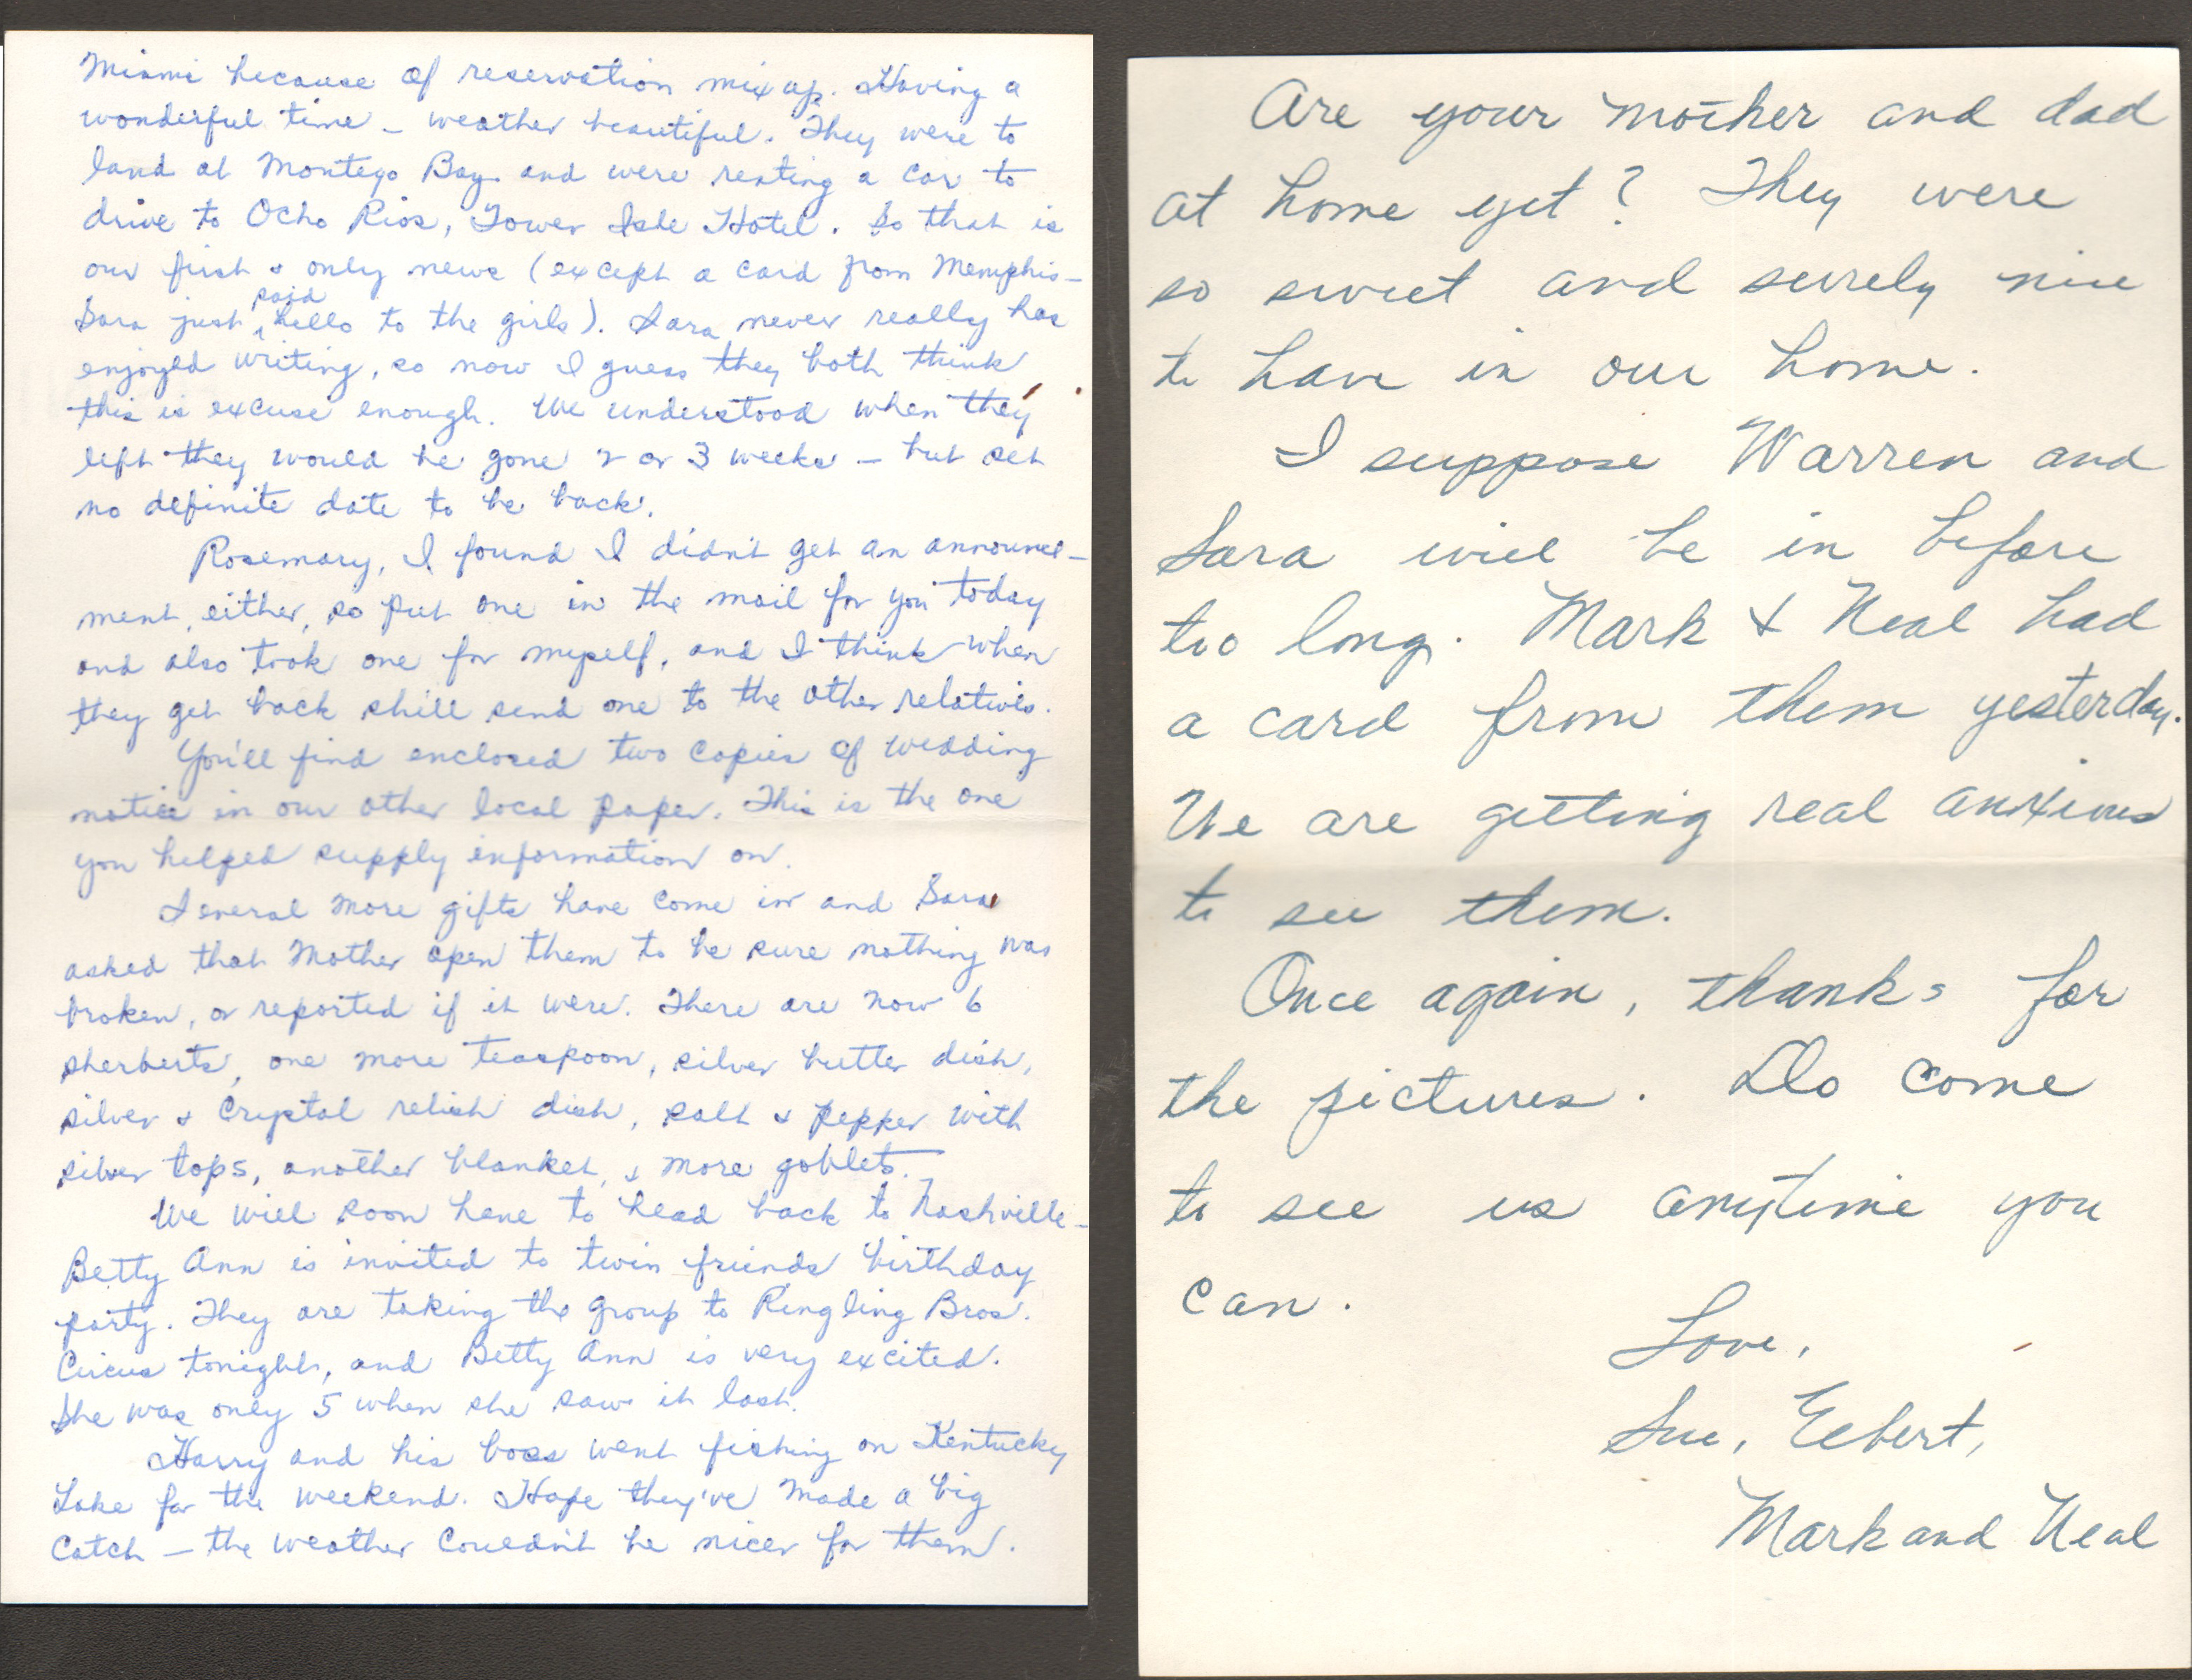 Miami because of reservation mix up. Having a
wonderful time – weather beautiful. They were to
land at Montego Bay and were renting a car to
drive to Ocho Rios, Tower Isle Hotel. So that is
our first & only news (except a card from Memphis –
Sara just said hello to the girls). Sara never really has
enjoyed writing, so now I guess they both think
this is excuse enough. We understood when they
left they would be gone 2 or 3 weeks – but set
no definite date to be back.
Rosemary, I found I didn't get an announce-
ment, either, so put one in the mail for you today
and also took one for myself, and I think when
they get back she'll send one to the other relatives.
You'll find enclosed two copies of wedding
notice in our other local paper. This is the one
you helped supply information on.
Several more gifts have come in and Sara
asked that Mother open them to be sure nothing was
broken, or reported if it were. There are now 6
sherberts, one more teaspoon, silver butter dish,
silver & crystal relish dish, salt & pepper with
silver tops, another blanket, & more goblets.
We will soon have to head back to Nashville –
Betty Ann is invited to twin friends birthday
party. They are taking the group to Ringling Bros.
Circus tonight, and Betty Ann is very excited.
She was only 5 when she saw it last.
Harry and his boss went fishing on Kentucky
Lake for the weekend. Hope they've made a big
catch – the weather couldn't be nicer for them.
Are your mother and dad
at home yet? They were
so sweet and surely nice
to have in our home.
I suppose Warren and
Sara will be in before
too long. Mark & Neal had
a card from them yesterday.
We are getting real anxious
to see them.
Once again, thanks for
the pictures. Do come
to see us anytime you
can.
Love,
Sue, Elbert,
Mark and Neal